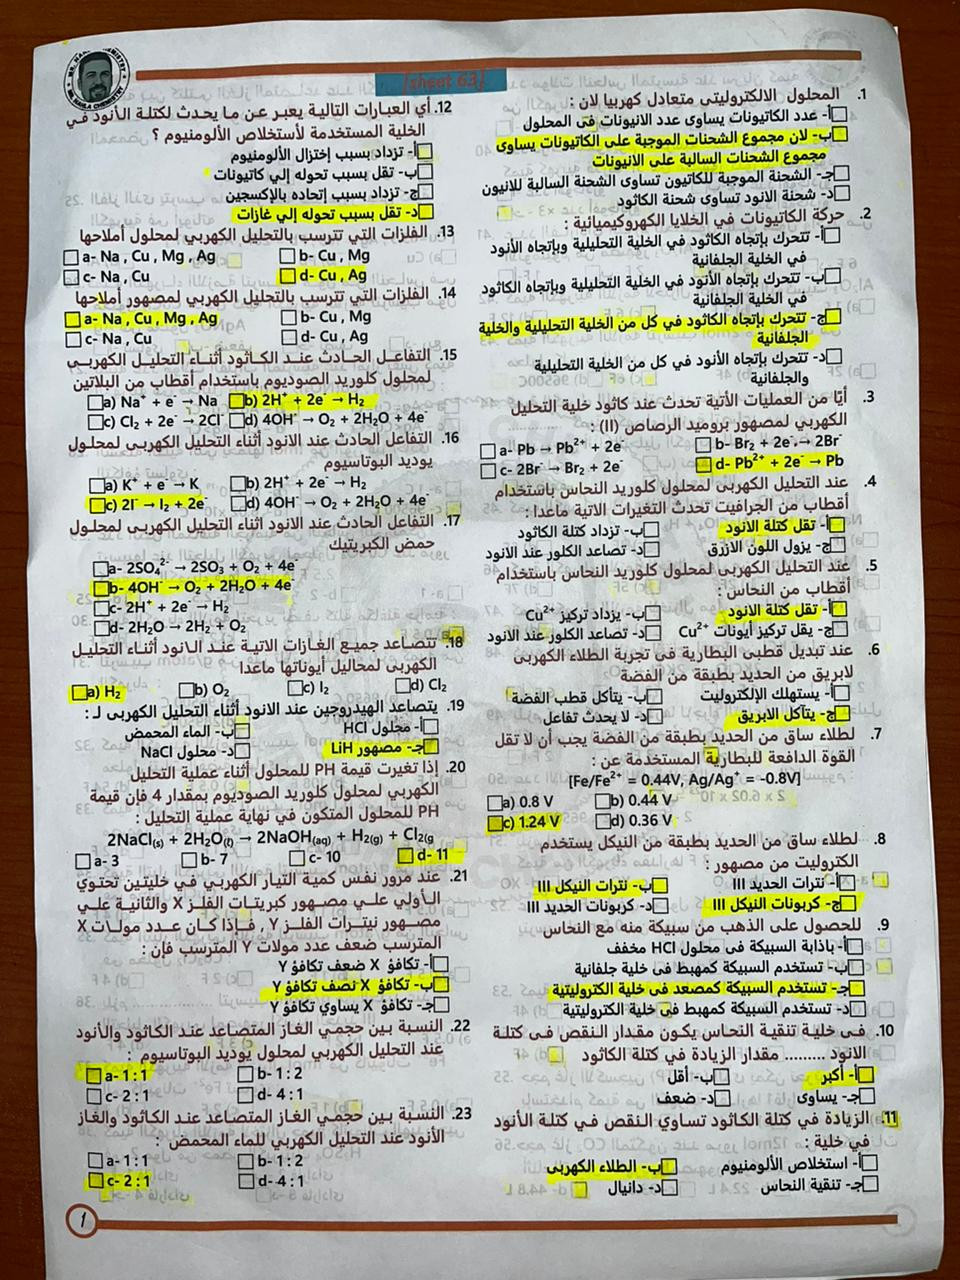 {sheet 63}
1. المحلول الالكتروليتى متعادل كهربيا لان :
أ- عدد الكاتيونات يساوى عدد الانيونات فى المحلول
ب- لان مجموع الشحنات الموجبة على الكاتيونات يساوى
مجموع الشحنات السالبة على الانيونات
جـ- الشحنة الموجبة للكاتيون تساوى الشحنة السالبة للانيون
د- شحنة الانود تساوى شحنة الكاثود
2. حركة الكاتيونات في الخلايا الكهروكيميائية :
أ- تتحرك بإتجاه الكاثود في الخلية التحليلية وبإتجاه الأنود
في الخلية الجلفانية
ب- تتحرك بإتجاه الأنود في الخلية التحليلية وبإتجاه الكاثود
في الخلية الجلفانية
ج- تتحرك بإتجاه الكاثود في كل من الخلية التحليلية والخلية
الجلفانية
د- تتحرك بإتجاه الأنود في كل من الخلية التحليلية
والجلفانية
3. أيًا من العمليات الأتية تحدث عند كاثود خلية التحليل
الكهربي لمصهور بروميد الرصاص (II) :
a- Pb → Pb²⁺ + 2e⁻ b- Br₂ + 2e⁻ → 2Br⁻
c- 2Br⁻ → Br₂ + 2e⁻ d- Pb²⁺ + 2e⁻ → Pb
4. عند التحليل الكهربى لمحلول كلوريد النحاس باستخدام
أقطاب من الجرافيت تحدث التغيرات الاتية ماعدا :
أ- تقل كتلة الانود ب- تزداد كتلة الكاثود
ج- يزول اللون الازرق د- تصاعد الكلور عند الانود
5. عند التحليل الكهربى لمحلول كلوريد النحاس باستخدام
أقطاب من النحاس :
أ- تقل كتلة الانود ب- يزداد تركيز Cu²⁺
ج- يقل تركيز أيونات Cu²⁺ د- تصاعد الكلور عند الانود
6. عند تبديل قطبى البطارية فى تجربة الطلاء الكهربى
لابريق من الحديد بطبقة من الفضة
أ- يستهلك الإلكتروليت ب- يتأكل قطب الفضة
ج- يتأكل الابريق د- لا يحدث تفاعل
7. لطلاء ساق من الحديد بطبقة من الفضة يجب أن لا تقل
القوة الدافعة للبطارية المستخدمة عن :
[Fe/Fe²⁺ = 0.44V, Ag/Ag⁺ = -0.8V]
a) 0.8 V b) 0.44 V
c) 1.24 V d) 0.36 V
8. لطلاء ساق من الحديد بطبقة من النيكل يستخدم
الكتروليت من مصهور :
أ- نترات الحديد III ب- نترات النيكل III
ج- كربونات النيكل III د- كربونات الحديد III
9. للحصول على الذهب من سبيكة منه مع النحاس
أ- باذابة السبيكة فى محلول HCl مخفف
ب- تستخدم السبيكة كمهبط فى خلية جلفانية
جـ- تستخدم السبيكة كمصعد فى خلية الكتروليتية
د- تستخدم السبيكة كمهبط فى خلية إلكتروليتية
10. فى خلية تنقية النحاس يكون مقدار النقص فى كتلة
الانود ......... مقدار الزيادة في كتلة الكاثود
أ- أكبر ب- أقل
جـ- يساوى د- ضعف
11. الزيادة في كتلة الكاثود تساوي النقص في كتلة الأنود
في خلية :
أ- استخلاص الألومنيوم ب- الطلاء الكهربى
جـ- تنقية النحاس د- دانيال
12. أي العبارات التالية يعبر عن ما يحدث لكتلة الأنود في
الخلية المستخدمة لأستخلاص الألومنيوم ؟
أ- تزداد بسبب إختزال الألومنيوم
ب- تقل بسبب تحوله إلي كاتيونات
ج- تزداد بسبب إتحاده بالإكسجين
د- تقل بسبب تحوله إلي غازات
13. الفلزات التي تترسب بالتحليل الكهربي لمحلول أملاحها
a- Na , Cu , Mg , Ag b- Cu , Mg
c- Na , Cu d- Cu , Ag
14. الفلزات التي تترسب بالتحليل الكهربي لمصهور أملاحها
a- Na , Cu , Mg , Ag b- Cu , Mg
c- Na , Cu d- Cu , Ag
15. التفاعل الحادث عند الكاثود أثناء التحليل الكهربى
لمحلول كلوريد الصوديوم باستخدام أقطاب من البلاتين
a) Na⁺ + e⁻ → Na b) 2H⁺ + 2e⁻ → H₂
c) Cl₂ + 2e⁻ → 2Cl⁻ d) 4OH⁻ → O₂ + 2H₂O + 4e⁻
16. التفاعل الحادث عند الانود أثناء التحليل الكهربى لمحلول
يوديد البوتاسيوم
a) K⁺ + e⁻ → K b) 2H⁺ + 2e⁻ → H₂
c) 2I⁻ → I₂ + 2e⁻ d) 4OH⁻ → O₂ + 2H₂O + 4e⁻
17. التفاعل الحادث عند الانود اثناء التحليل الكهربى لمحلول
حمض الكبريتيك
a- 2SO₄²⁻ → 2SO₃ + O₂ + 4e⁻
b- 4OH⁻ → O₂ + 2H₂O + 4e⁻
c- 2H⁺ + 2e⁻ → H₂
d- 2H₂O → 2H₂ + O₂
18. تتصاعد جميع الغازات الاتية عند الانود أثناء التحليل
الكهربى لمحاليل أيوناتها ماعدا
a) H₂ b) O₂ c) I₂ d) Cl₂
19. يتصاعد الهيدروجين عند الانود أثناء التحليل الكهربى لـ :
أ- محلول HCl ب- الماء المحمض
جـ- مصهور LiH د- محلول NaCl
20. إذا تغيرت قيمة PH للمحلول أثناء عملية التحليل
الكهربي لمحلول كلوريد الصوديوم بمقدار 4 فإن قيمة
PH للمحلول المتكون في نهاية عملية التحليل :
2NaCl(s) + 2H₂O(ℓ) → 2NaOH(aq) + H₂(g) + Cl₂(g)
a- 3 b- 7 c- 10 d- 11
21. عند مرور نفس كمية التيار الكهربي في خليتين تحتوي
الأولي علي مصهور كبريتات الفلز X والثانية علي
مصهور نيترات الفلز Y , فإذا كان عدد مولات X
المترسب ضعف عدد مولات Y المترسب فإن :
أ- تكافؤ X ضعف تكافؤ Y
ب- تكافؤ X نصف تكافؤ Y
جـ- تكافؤ X يساوي تكافؤ Y
22. النسبة بين حجمي الغاز المتصاعد عند الكاثود والأنود
عند التحليل الكهربي لمحلول يوديد البوتاسيوم :
a- 1 : 1 b- 1 : 2
c- 2 : 1 d- 4 : 1
23. النسبة بين حجمي الغاز المتصاعد عند الكاثود والغاز
الأنود عند التحليل الكهربي للماء المحمض :
a- 1 : 1 b- 1 : 2
c- 2 : 1 d- 4 : 1
1